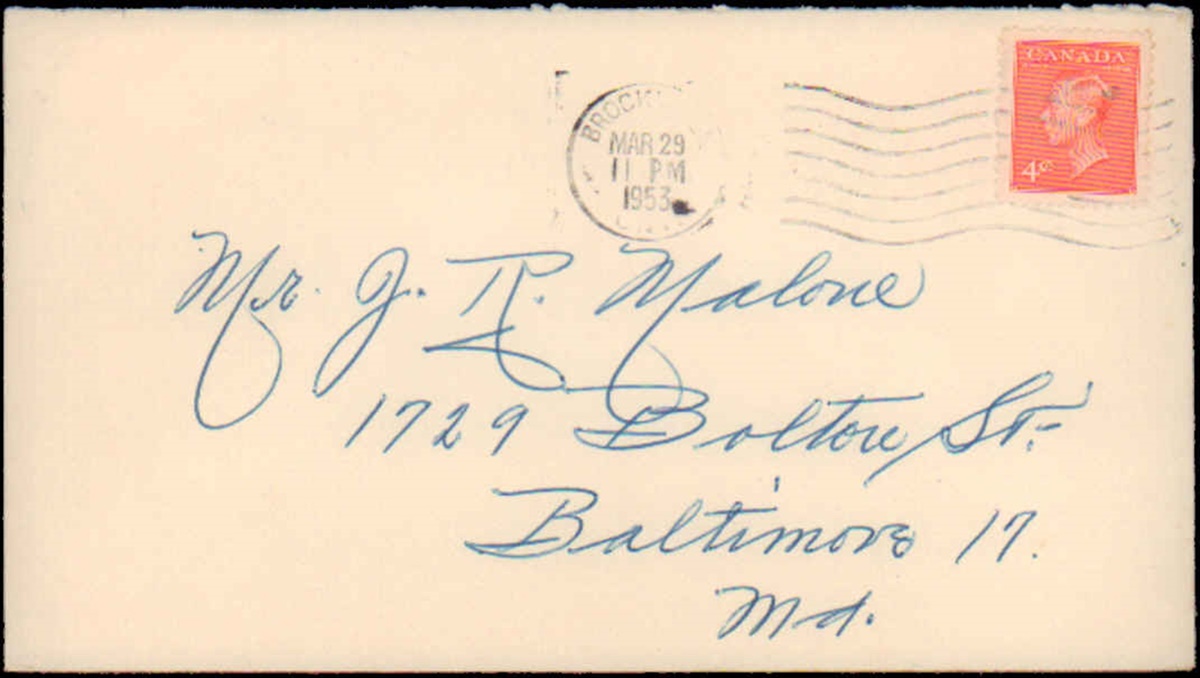 CANADA
4c
MAR 29
11 PM
1953
Mr. J. R. Malone
1729 Bolton St.
Baltimore 17.
Md.